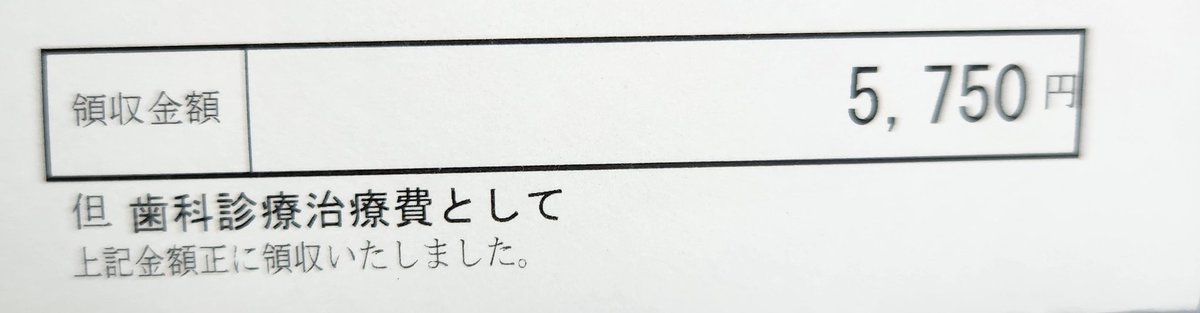 領収金額 5,750円
但 歯科診療治療費として
上記金額正に領収いたしました。